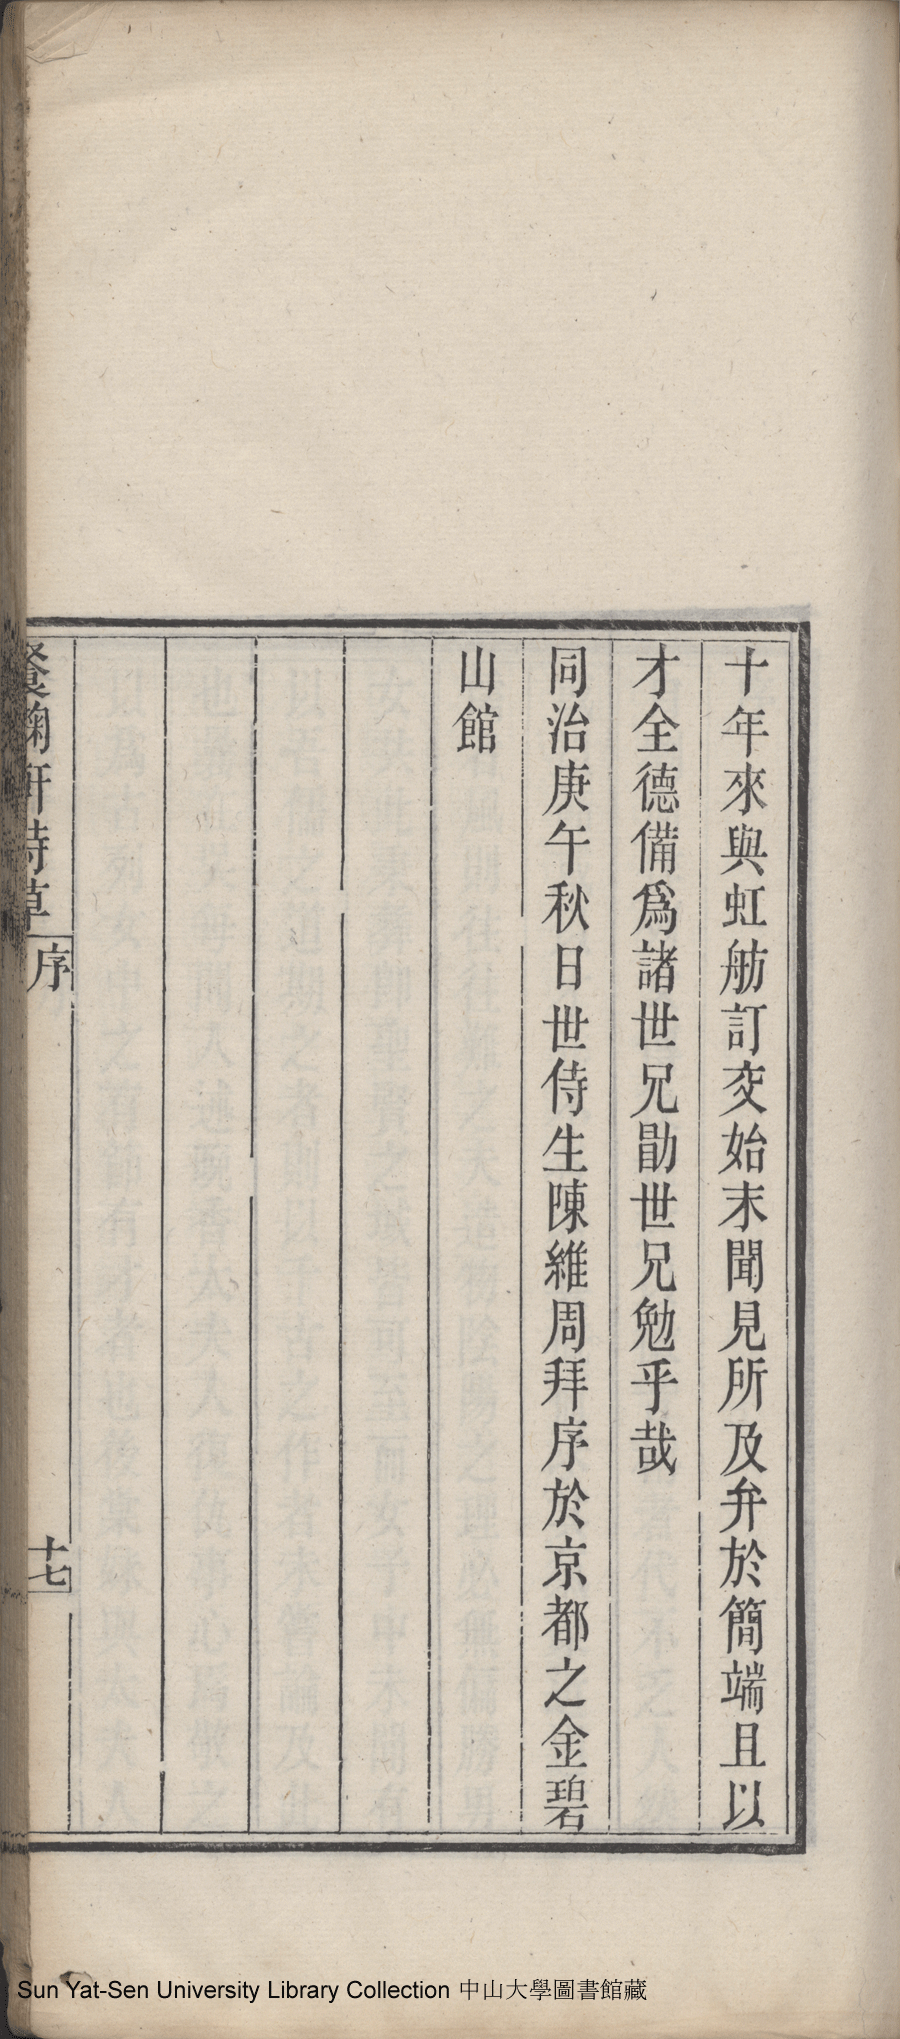 十年來與虹舫訂交始末聞見所及弁於簡端且以
才全德備爲諸世兄勖世兄勉乎哉
同治庚午秋日世侍生陳維周拜序於京都之金碧
山館
餐鞠軒詩草
序
十七
Sun Yat-Sen University Library Collection 中山大學圖書館藏